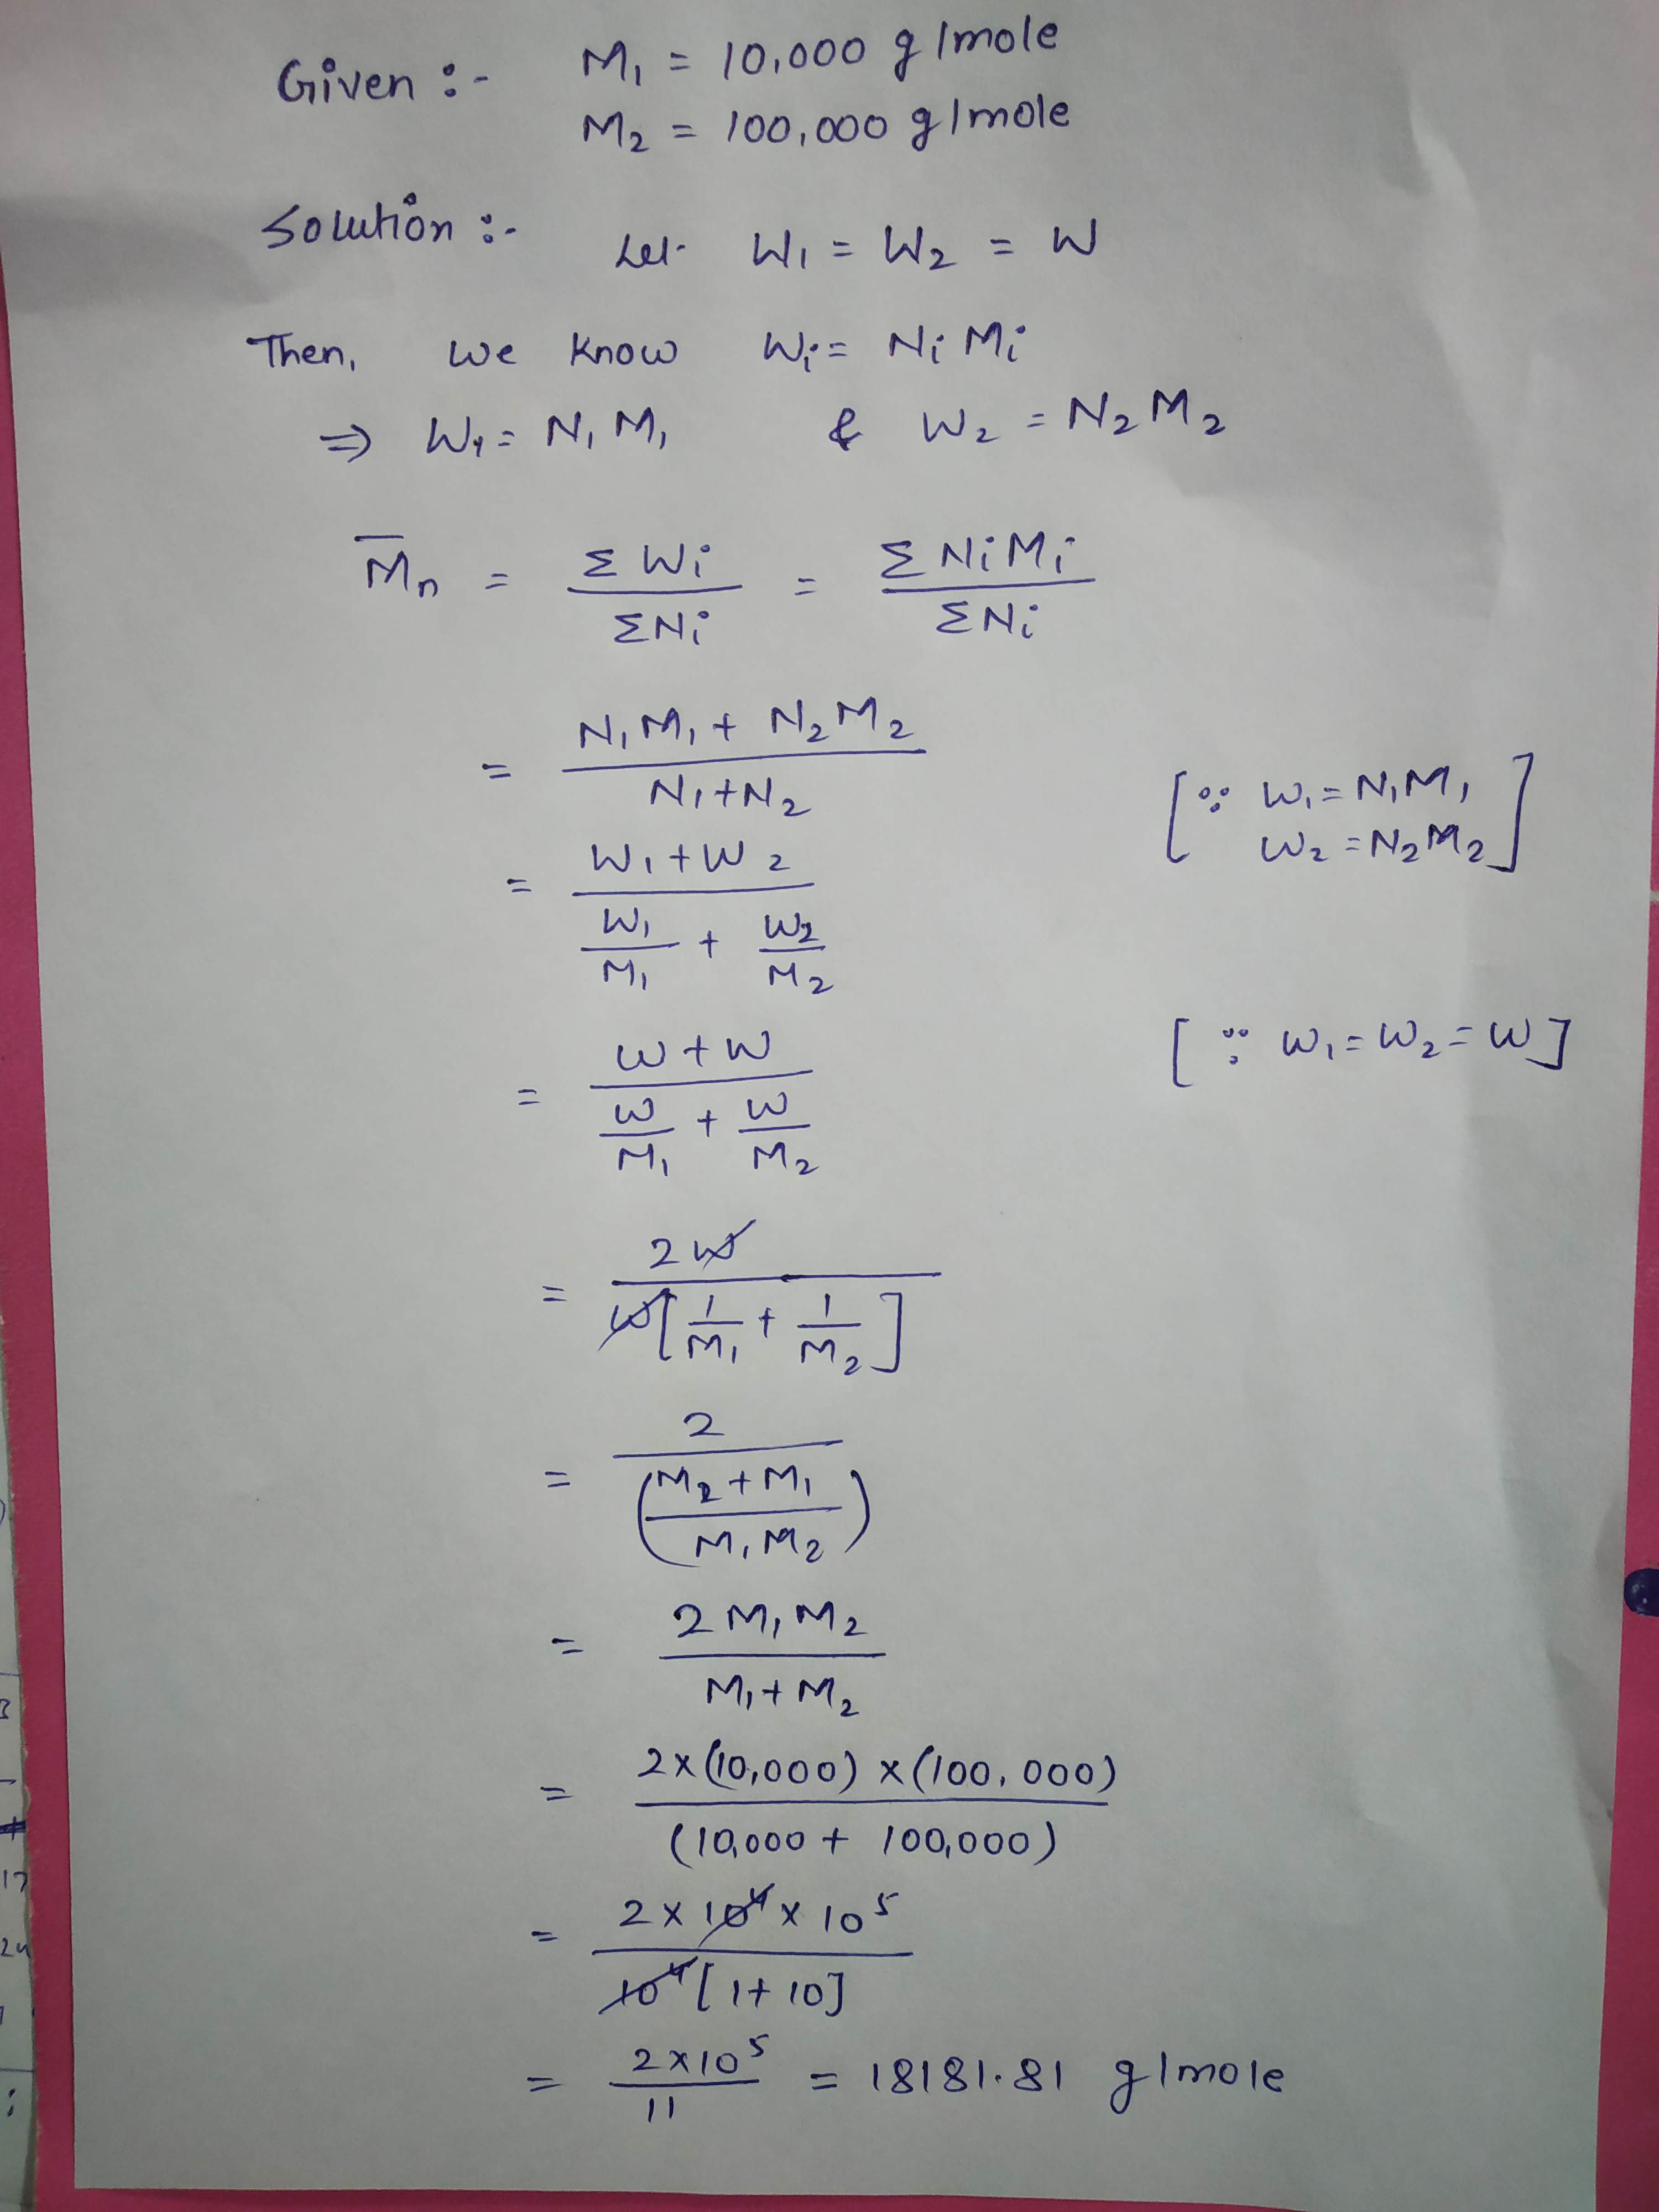 Given :- M₁ = 10,000 g/mole
M₂ = 100,000 g/mole
Solution :- Let W₁ = W₂ = W
Then, we know Wi = Ni Mi
⇒ W₁ = N₁ M₁ & W₂ = N₂ M₂
M̅n = ΣWi / ΣNi = ΣNiMi / ΣNi
= (N₁M₁ + N₂M₂) / (N₁+N₂) [∵ W₁ = N₁M₁
W₂ = N₂M₂]
= (W₁+W₂) / (W₁/M₁ + W₂/M₂)
= (W+W) / (W/M₁ + W/M₂) [∵ W₁ = W₂ = W]
= 2W / W[1/M₁ + 1/M₂]
= 2 / ((M₂+M₁) / M₁M₂)
= 2M₁M₂ / (M₁+M₂)
= 2×(10,000)×(100,000) / (10,000 + 100,000)
= 2×10⁴×10⁵ / 10⁴[1+10]
= 2×10⁵ / 11 = 18181.81 g/mole
17
24